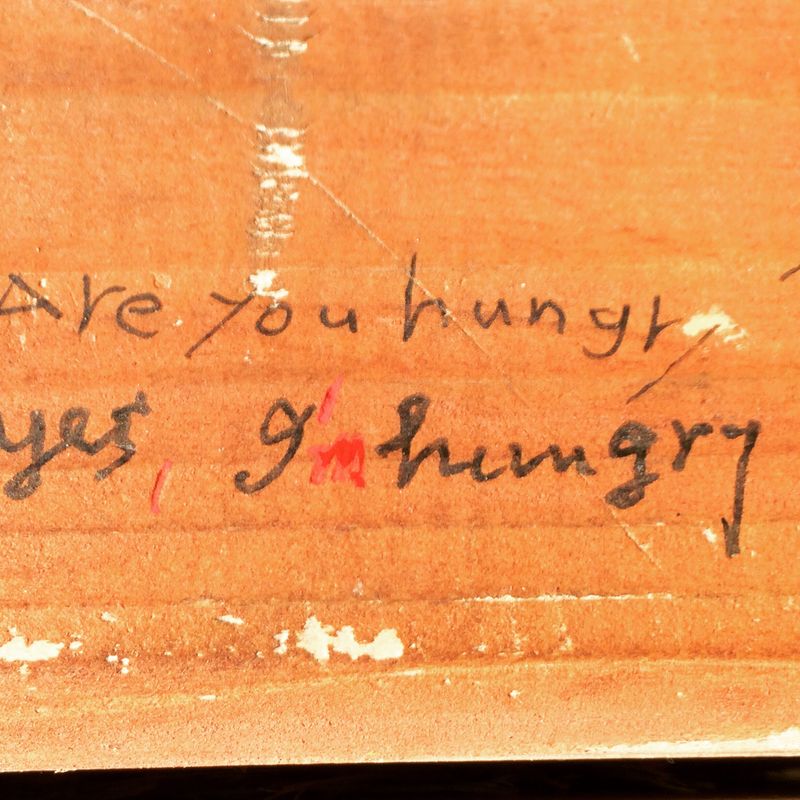 Are you hungry
yes, I'm hungry